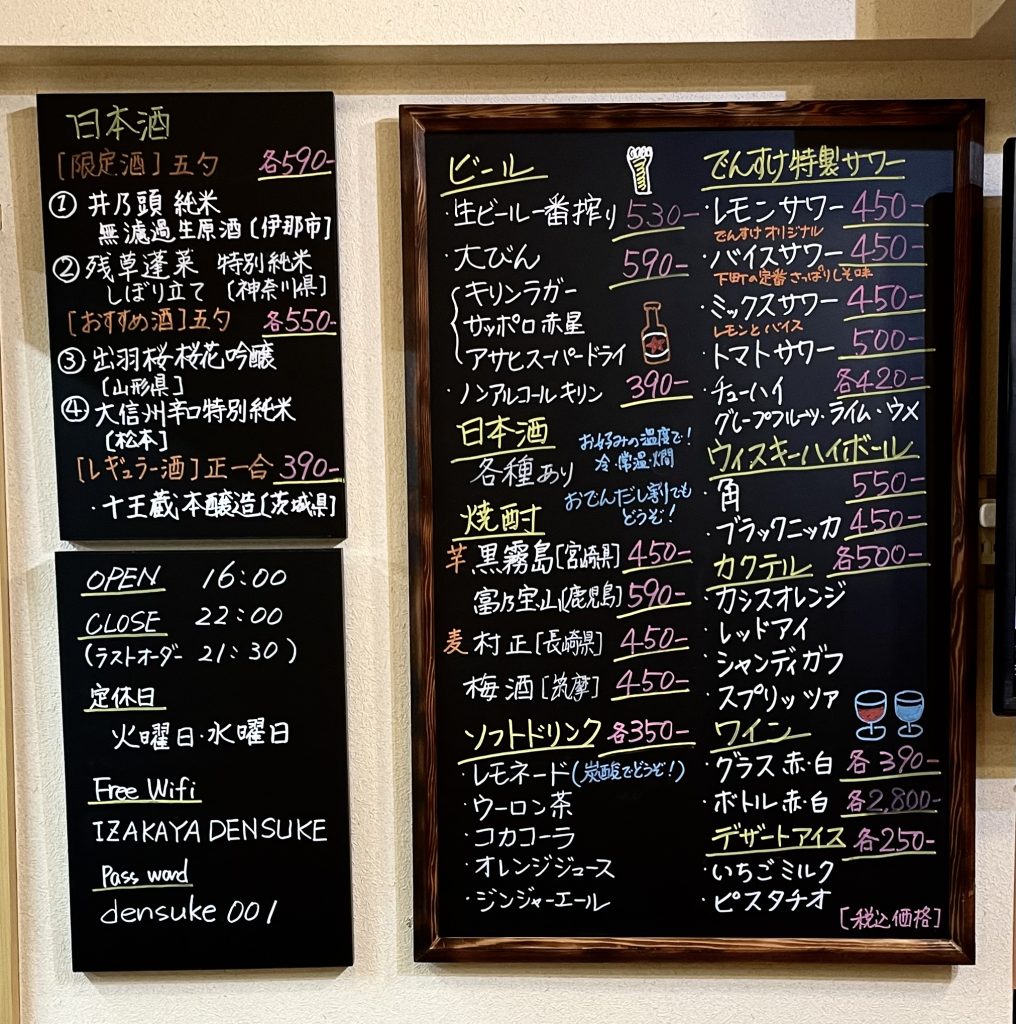 日本酒
[限定酒]五勺 各590-
① 井乃頭 純米
無濾過生原酒[伊那市]
② 残草蓬莱 特別純米
しぼり立て [神奈川県]
[おすすめ酒]五勺 各550-
③ 出羽桜 桜花吟醸
[山形県]
④ 大信州辛口特別純米
[松本]
[レギュラー酒]正一合 390-
・十王蔵本醸造[茨城県]
OPEN 16:00
CLOSE 22:00
(ラストオーダー 21:30)
定休日
火曜日・水曜日
Free Wifi
IZAKAYA DENSUKE
Pass word
densuke 001
ビール
・生ビール一番搾り 530-
・大びん 590-
キリンラガー
サッポロ赤星
アサヒスーパードライ
・ノンアルコールキリン 390-
日本酒
各種あり
お好みの温度で!
冷・常温・燗
おでんだし割でも
どうぞ!
焼酎
芋 黒霧島[宮崎県] 450-
富乃宝山[鹿児島] 590-
麦 村正[長崎県] 450-
梅酒[筑摩] 450-
ソフトドリンク 各350-
・レモネード(炭酸でどうぞ!)
・ウーロン茶
・コカコーラ
・オレンジジュース
・ジンジャーエール
でんすけ特製サワー
・レモンサワー 450-
でんすけオリジナル
・バイスサワー 450-
下町の定番さっぱりしそ味
・ミックスサワー 450-
レモンとバイス
・トマトサワー 500-
・チューハイ 各420-
グレープフルーツ・ライム・ウメ
ウィスキーハイボール
・角 550-
・ブラックニッカ 450-
カクテル 各500-
・カシスオレンジ
・レッドアイ
・シャンディガフ
・スプリッツァ
ワイン
・グラス 赤・白 各390-
・ボトル 赤・白 各2,800-
デザートアイス 各250-
・いちごミルク
・ピスタチオ
[税込価格]